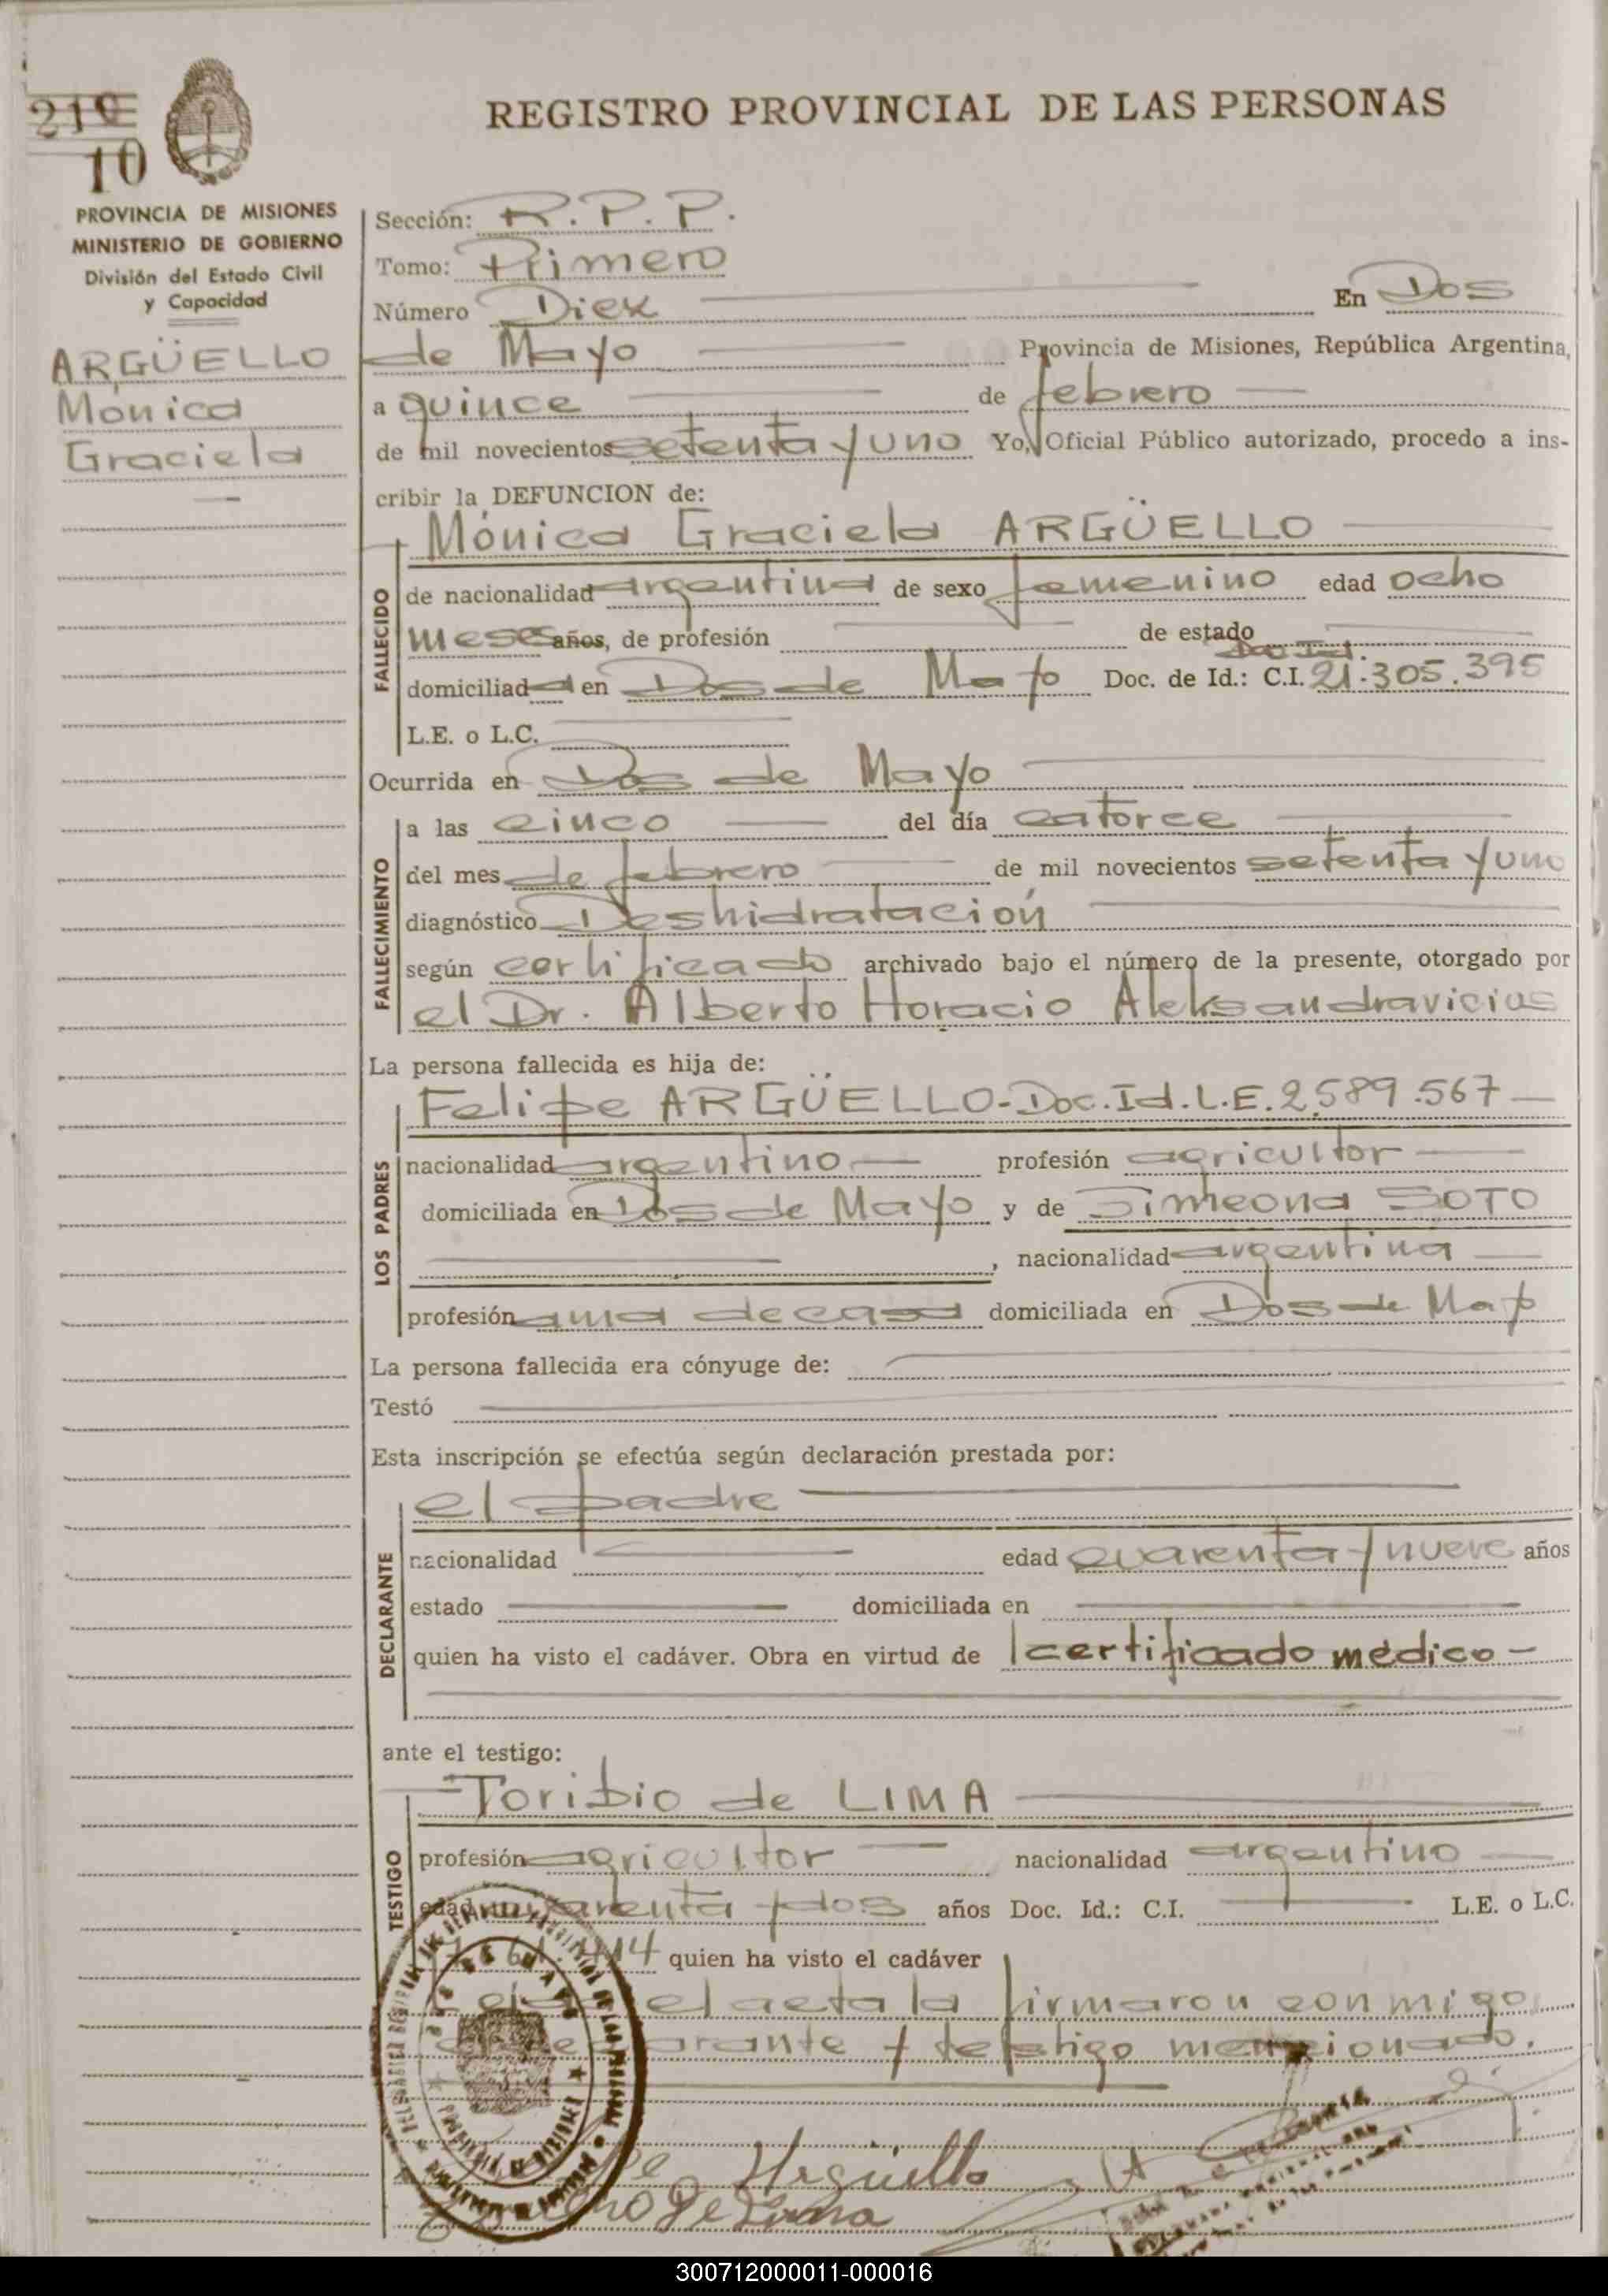 210
10
REGISTRO PROVINCIAL DE LAS PERSONAS
PROVINCIA DE MISIONES
MINISTERIO DE GOBIERNO
División del Estado Civil
y Capacidad
ARGÜELLO
Mónica
Graciela
Sección: R.P.P.
Tomo: Primero
Número Diez En Dos
de Mayo Provincia de Misiones, República Argentina,
a quince de febrero
de mil novecientos setenta y uno Yo, Oficial Público autorizado, procedo a ins-
cribir la DEFUNCION de:
Mónica Graciela ARGÜELLO
FALLECIDO
de nacionalidad argentina de sexo femenino edad ocho
meses años, de profesión de estado
Doc. Ind.
domiciliada en Dos de Mayo Doc. de Id.: C.I. 21.305.395
L.E. o L.C.
Ocurrida en Dos de Mayo
FALLECIMIENTO
a las cinco del día catorce
del mes de febrero de mil novecientos setenta y uno
diagnóstico Deshidratación
según certificado archivado bajo el número de la presente, otorgado por
el Dr. Alberto Horacio Aleksandravicius
La persona fallecida es hija de:
Felipe ARGÜELLO-Doc.Id.L.E.2.589.567
LOS PADRES
nacionalidad argentino profesión agricultor
domiciliada en Dos de Mayo y de Simeona SOTO
, nacionalidad argentina
profesión ama de casa domiciliada en Dos de Mayo
La persona fallecida era cónyuge de:
Testó
Esta inscripción se efectúa según declaración prestada por:
el padre
DECLARANTE
nacionalidad edad cuarenta y nueve años
estado domiciliada en
quien ha visto el cadáver. Obra en virtud de certificado médico
ante el testigo:
Toribio de LIMA
TESTIGO
profesión agricultor nacionalidad argentino
edad cuarenta y dos años Doc. Id.: C.I. L.E. o L.C.
414 quien ha visto el cadáver
el acta la firmaron conmigo
y testigo mencionado.
Argüello
de Lima
300712000011-000016